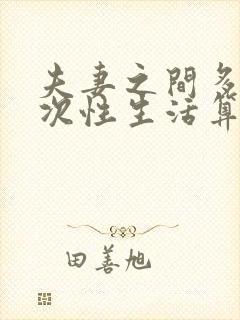 夫妻之間多
次性生活算
田善旭